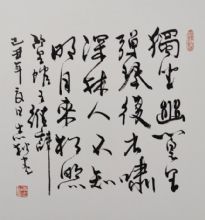 獨坐幽篁里
彈琴復長嘯
深林人不知
明月來相照
賀 王維詩
年 日